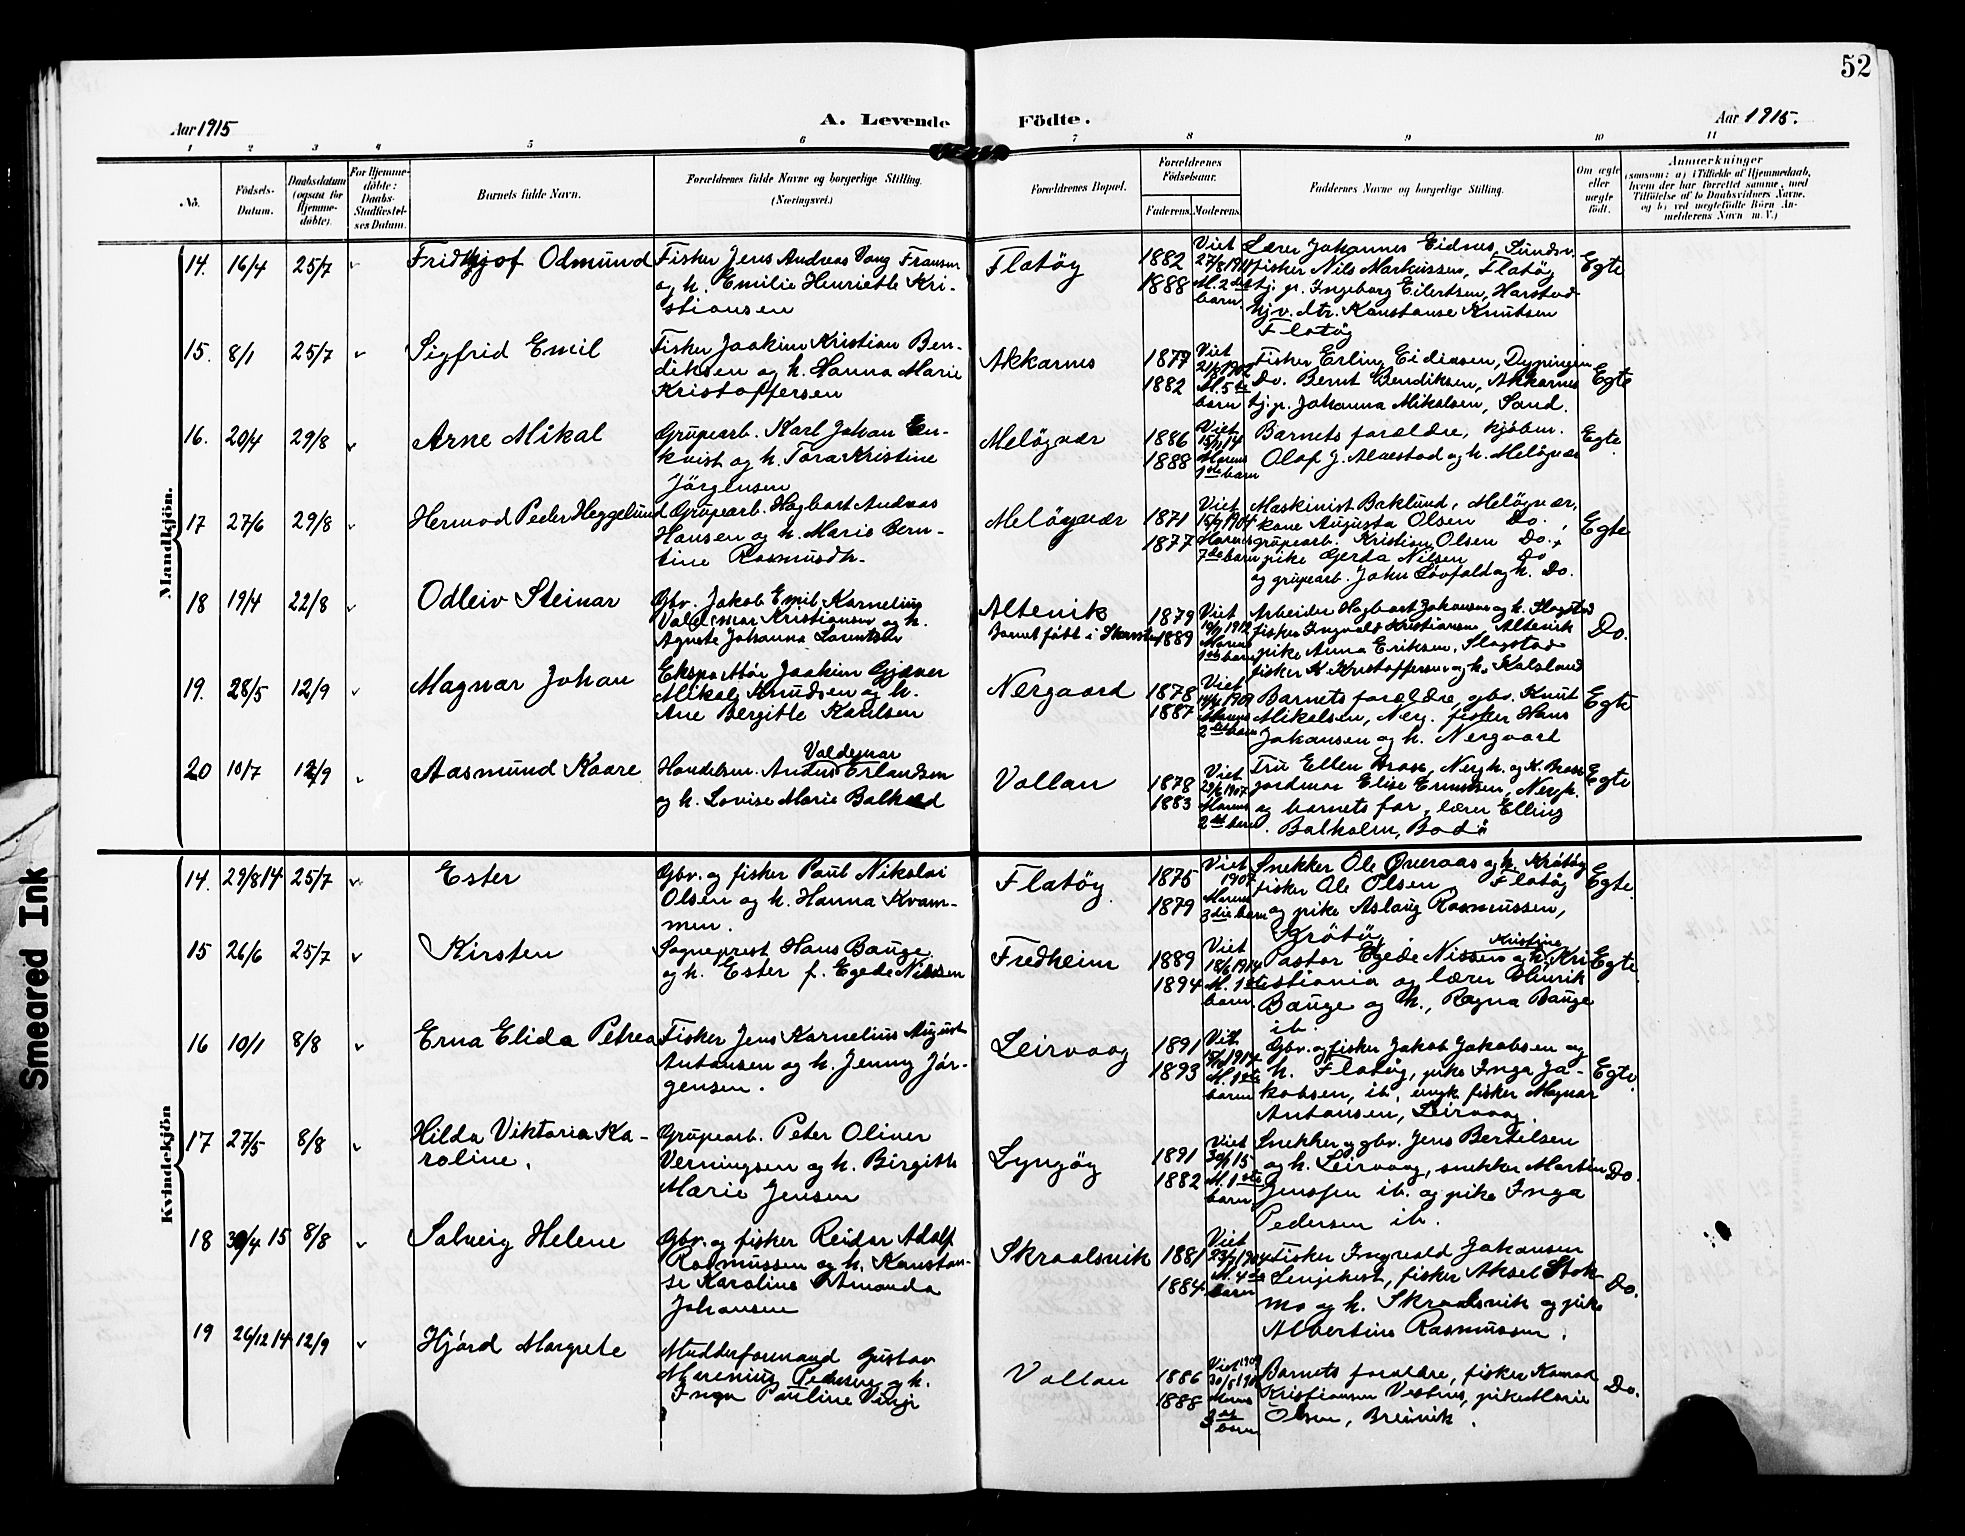 52
Aar 1915
A. Levende Födte.
Aar 1915.
1 2 3 4 5 6 7 8 9 10 11
No.
Födsels-
Datum.
Daabsdatum
(ogsaa for
Hjemme-
døbte).
For Hjemme-
döbte:
Daabs-
Stadfæstel-
ses Datum.
Barnets fulde Navn.
Forældrenes fulde Navne og borgerlige Stilling.
(Næringsvei.)
Forældrenes Bopæl.
Forældrenes
Födselsaar.
Faderens. Moderens.
Faddernes Navne og borgerlige Stilling.
Om ægte
eller
uægte
födt.
Anmærkninger
(saasom: a) i Tilfælde af Hjemmedaab,
hvem der har forrettet samme, med
Tilföielse af to Daabsvidners Navne,
og b) ved uægtefödte Börn An-
melderens Navn m. V.)
Mandkjön.
14. 16/4 25/7 Fridthjof Odmund
Fisker Jens Andreas Vang Fransen
og h. Emilie Henriette Kri-
stiansen
Flatöy
1882
1888
Viet
27/8 1911
M. 2det
barn.
Lærer Johannes Eidnes, Sundsv.
fisker Nils Markussen, Flatöy
tj. p. Ingeborg Eilertsen, Harstad
hjv. dtr. Konstanse Knutsen
Flatöy
Egte
15. 8/1 25/7 Sigfrid Emil
Fisker Joakim Kristian Ben-
diksen og h. Hanna Marie
Kristoffersen
Akkarnes
1879
1882
Viet
M. 5te
barn
Fisker Erling Eidissen,
Do. Bernt Bendiksen, Akkarnes
tj. p. Johanna Mikalsen, Sand.
Egte
16. 20/4 29/8 Arne Mikal
Grubearb. Karl Johan En-
kvist og h. Tora Kristine
Jörgensen
Melöyvær
1886
1888
Viet
15/11 14
Morens
1ste barn
Barnets forældre, kjöbm.
Olaf J. Alvestad og h. Melöyvær
Egte
17 27/6 29/8 Hermod Peder Heggelund
Grubearb. Hagbart Andreas
Hansen og h. Marie Bern-
tine Rasmusdh.
Melöyvær
1871
1877
Viet
15/9 1904
Morens
7de barn
Maskinist Beklund, Melöyvær,
kone Augusta Olsen Do.,
grubearb. Kristian Olsen Do.,
pike Gerda Nilsen Do
og grubearb. John Lövfald og h. Do.
Egte
18 19/4 22/8 Odleiv Steinar
Gbr. Jakob Emil Kornelius
Valdemar Kristiansen og h.
Agnete Johanna Lorentsen
Altevik
Barnet född i
1879
1889
Viet
1912
Morens
1ste barn
Arbeider Hagbart Johansen og h. Slagstad
fisker Ingvald Kristiansen, Altevik
pike Anna Eriksen, Slagstad
fisker K. Kristoffersen og h. Kalsland
Do.
19. 28/5 12/9 Magnar Johan
Joakim Gjæver
Mikal Knudsen og h.
Ane Bergitte Karlsen
Nergaard
1878
1887
Viet
1909
Morens
2det barn
Barnets forældre, gbr. Knut
Mikelsen, Nerg. fisker Hans
Johansen og h. Nergaard
Egte
20 10/7 12/9 Aasmund Kaare
Valdemar
Handelsm. Anders Erlandsen
og h. Lovise Marie Balhald
Vollan
1878
1883
Viet
29/6 1907
Morens
2det barn
Fru Ellen Brose, Nergh. og K. Brose
jordmor Elise Ernstsen, Nergh.
og barnets far, lærer Elling
Balholm, Bodö
Egte
Kvindekjön
14. 29/8 14 25/7 Ester
Gbr. og fisker Paul Nikolai
Olsen og h. Hanna Kvam-
men.
Flatöy.
1875
1879
Viet
1907
Morens
3die barn
Snekker Ole Överaas og h. Kråtöy
fisker Ole Olsen Flatöy
og pike Aslaug Rasmussen,
Kröttöy
Egte.
15 26/6 25/7 Kirsten
Sogneprest Hans Bauge
og h. Ester f. Egede Nissen
Fredheim
1889
1894
Viet
18/6 1914
M. 1ste
barn.
Kristine
Pastor Egede Nissen og h. Kri-
stiania og lærer Hinrik
Bauge og h., Ragna Bauge
ib.
Egte.
16 10/1 8/8 Erna Elida Petrea
Fisker Jens Kornelius August
Antonsen og h. Jenny Jör-
gensen.
Leirvaag
1891
1893
Viet
1914
M. 1ste
barn
Gbr. og fisker Jakob Jakobsen og
h. Flatöy, pike Inga Ja-
kobsen, ib., ungk. fisker Magnar
Antonsen, Leirvaag.
Egte.
17 27/5 8/8 Hilda Viktoria Ka-
roline.
Grubearb. Peter Oliver
Verningsen og h. Birgitte
Marie Jensen
Lyngöy
1891
1882
Viet
30/1 15
M. 1ste
barn
Snekker og gbr. Jens Bertelsen
og h. Leirvaag, snekker Martin
Jenssen ib. og pike Inga
Pedersen ib.
Do.
18 30/4 15 8/8 Solveig Helene
Gbr. og fisker Reidar Adolf
Rasmussen og h. Konstan-
se Karoline Amanda
Johansen
Skraalsvik
1881
1884
Viet
M. 4de
barn
Fisker Ingvald Johansen
fisker Aksel Stok-
mo og h. Skraalsvik og pike
Albertine Rasmussen.
Do.
19 26/12 14 12/9 Hjörd Margrete
Mudderformand Gustav
Marenius Pedersen og h.
Inga Pauline Vinje
Vollan
1886
1888
Viet
Morens
3die
barn
Barnets forældre, fisker Konrad
Kristiansen Vestnes, pike Marie
Olsen, Breivik.
Do.
Smeared Ink